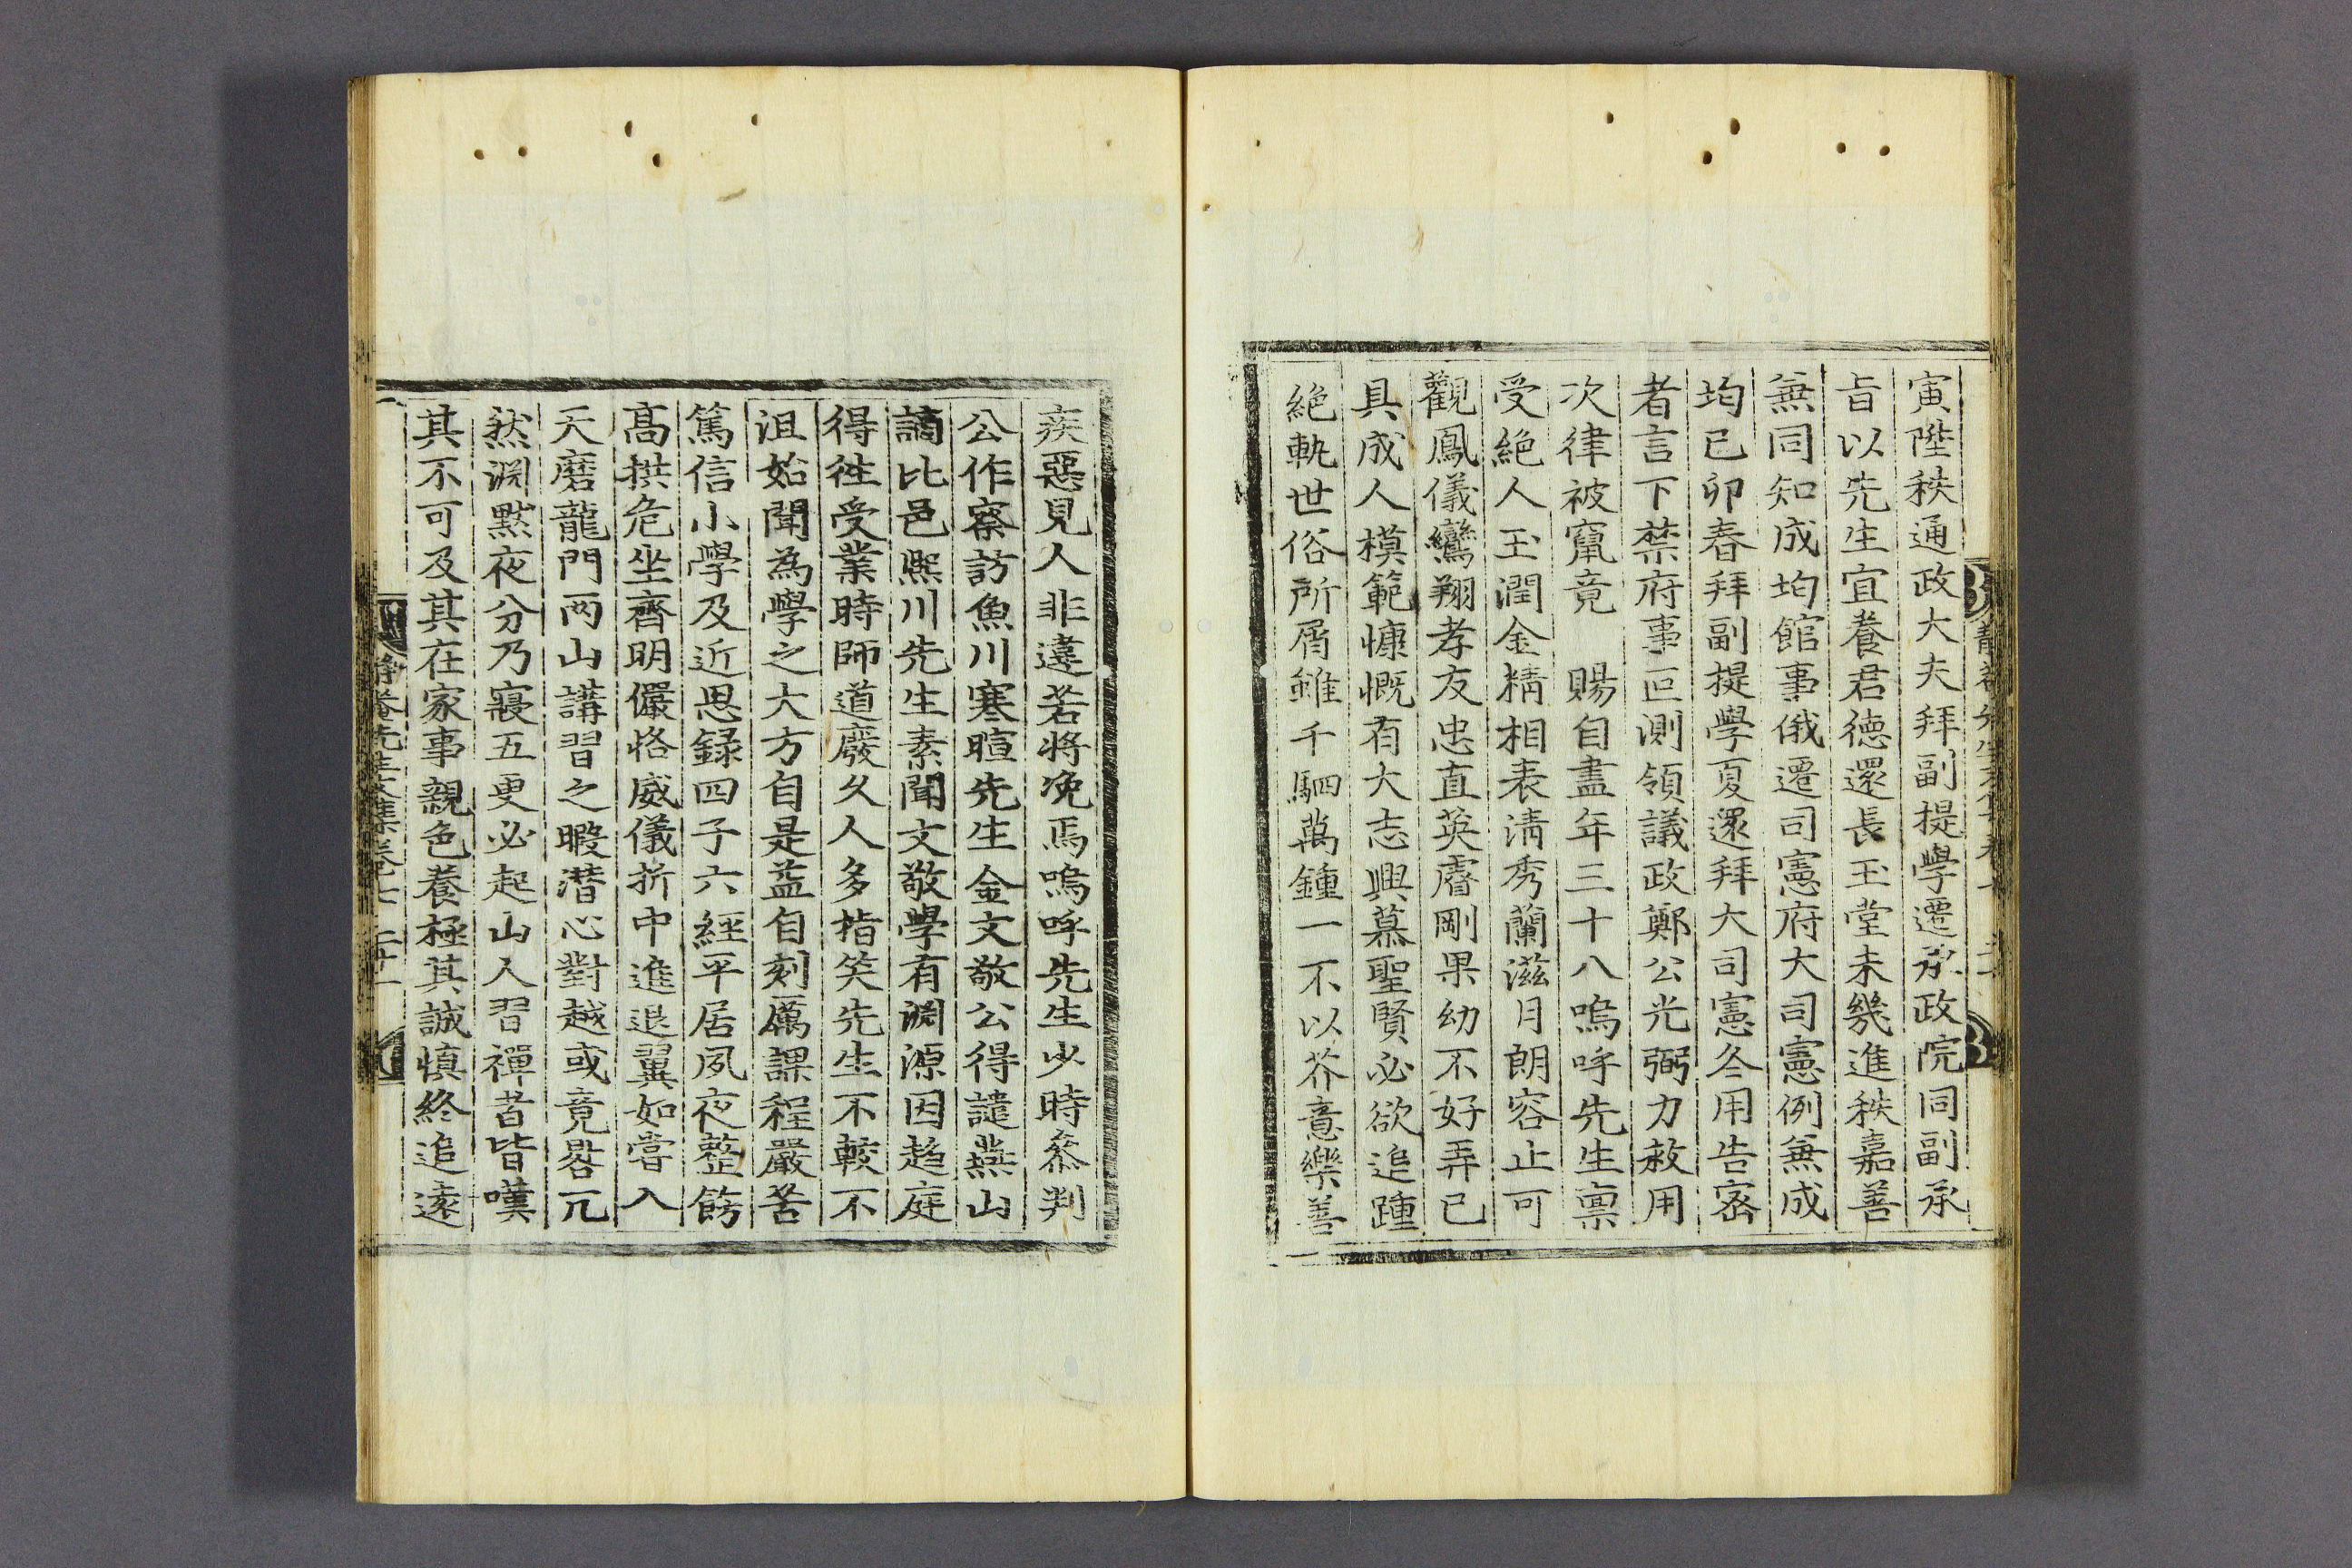 寅陞秩通政大夫拜副提學遷承政院同副承
旨以先生宜養君德還長玉堂未幾進秩嘉善
兼同知成均館事俄遷司憲府大司憲例兼成
均己卯春拜副提學夏還拜大司憲冬用告密
者言下禁府事叵測領議政鄭公光弼力救用
次律被竄竟 賜自盡年三十八嗚呼先生禀
受絶人玉潤金精相表淸秀蘭滋月朗容止可
觀鳳儀鸞翔孝友忠直英睿剛果幼不好弄已
具成人模範慷慨有大志興慕聖賢必欲追踵
絶軌世俗所屑雖千駟萬鍾一不以芥意樂善
疾惡見人非違若將浼焉嗚呼先生少時叅判
公作察訪魚川寒暄先生金文敬公得譴燕山
謫比邑熙川先生素聞文敬學有淵源因趍庭
得徃受業時師道廢久人多指笑先生不較不
沮始聞為學之大方自是益自刻厲課程嚴苦
篤信小學及近思録四子六經平居夙夜整飭
髙拱危坐齊明儼恪威儀折中進退翼如嘗入
天磨龍門兩山講習之暇潜心對越或竟晷兀
然淵默夜分乃寢五更必起山人習禪者皆嘆
其不可及其在家事親色養極其誠愼終追遠
靜菴先生文集卷七 二十一